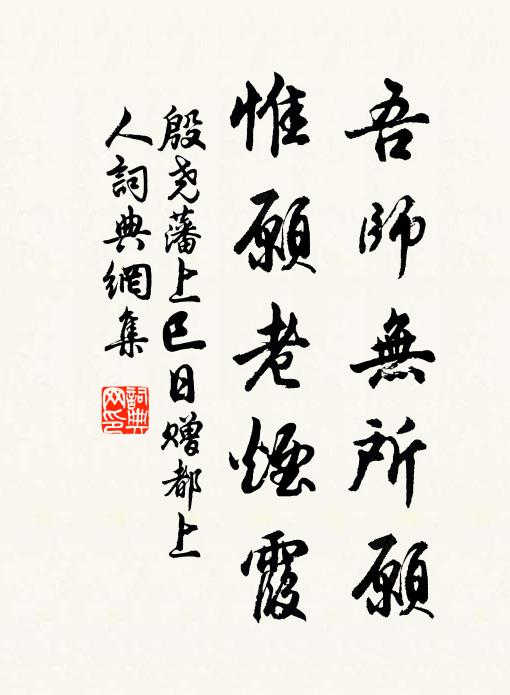 吾師無所願
惟願老煙霞
殷堯藩上巳日贈都上
人詞典網集
詞典
网印